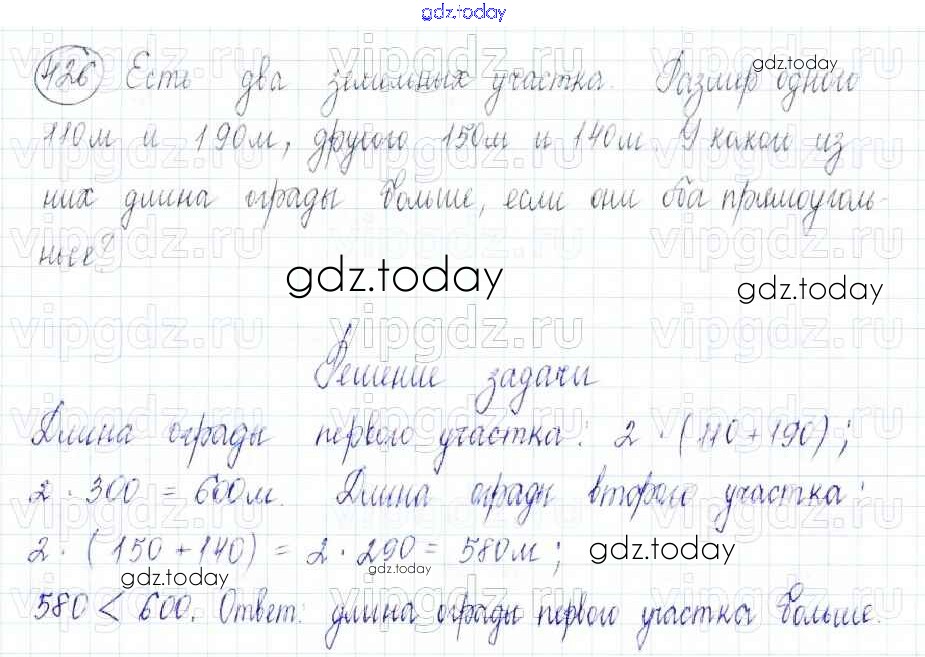 gdz.today
426 Есть два земельных участка. Размер одного
gdz.today
110м и 190м, другого 150м и 140м. У какой из
них длина ограды больше, если они оба прямоуголь-
ные?
gdz.today
gdz.today
Решение задачи
Длина ограды первого участка: 2 · (110 + 190);
2 · 300 = 600м. Длина ограды второго участка:
2 · (150 + 140) = 2 · 290 = 580м;
gdz.today
gdz.today
gdz.today
580 < 600. Ответ: длина ограды первого участка больше.
vipgdz.ru